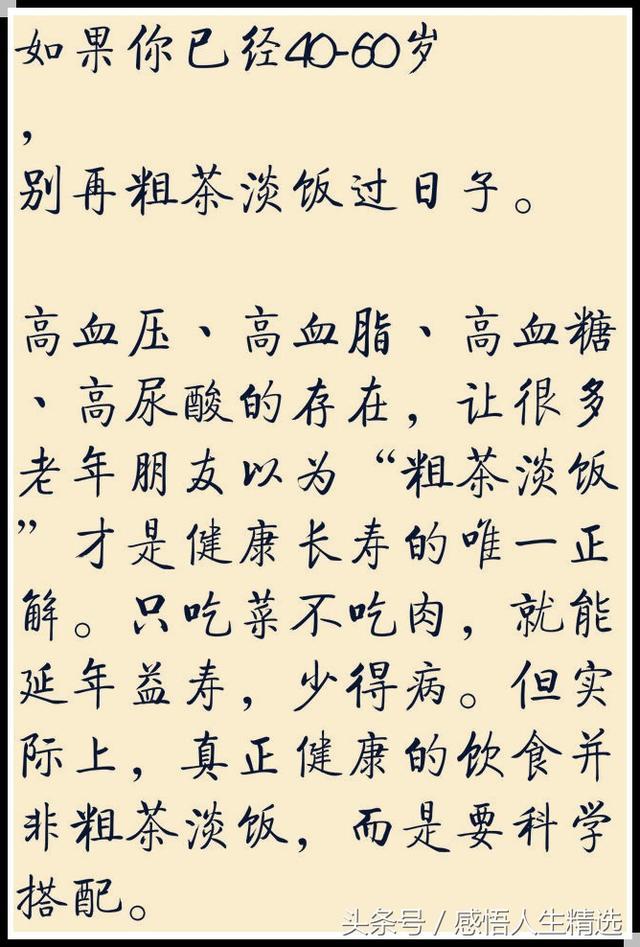 如果你已经40-60岁
，
别再粗茶淡饭过日子。
高血压、高血脂、高血糖
、高尿酸的存在，让很多
老年朋友以为“粗茶淡饭
”才是健康长寿的唯一正
解。只吃菜不吃肉，就能
延年益寿，少得病。但实
际上，真正健康的饮食并
非粗茶淡饭，而是要科学
搭配。
头条号／感悟人生精选